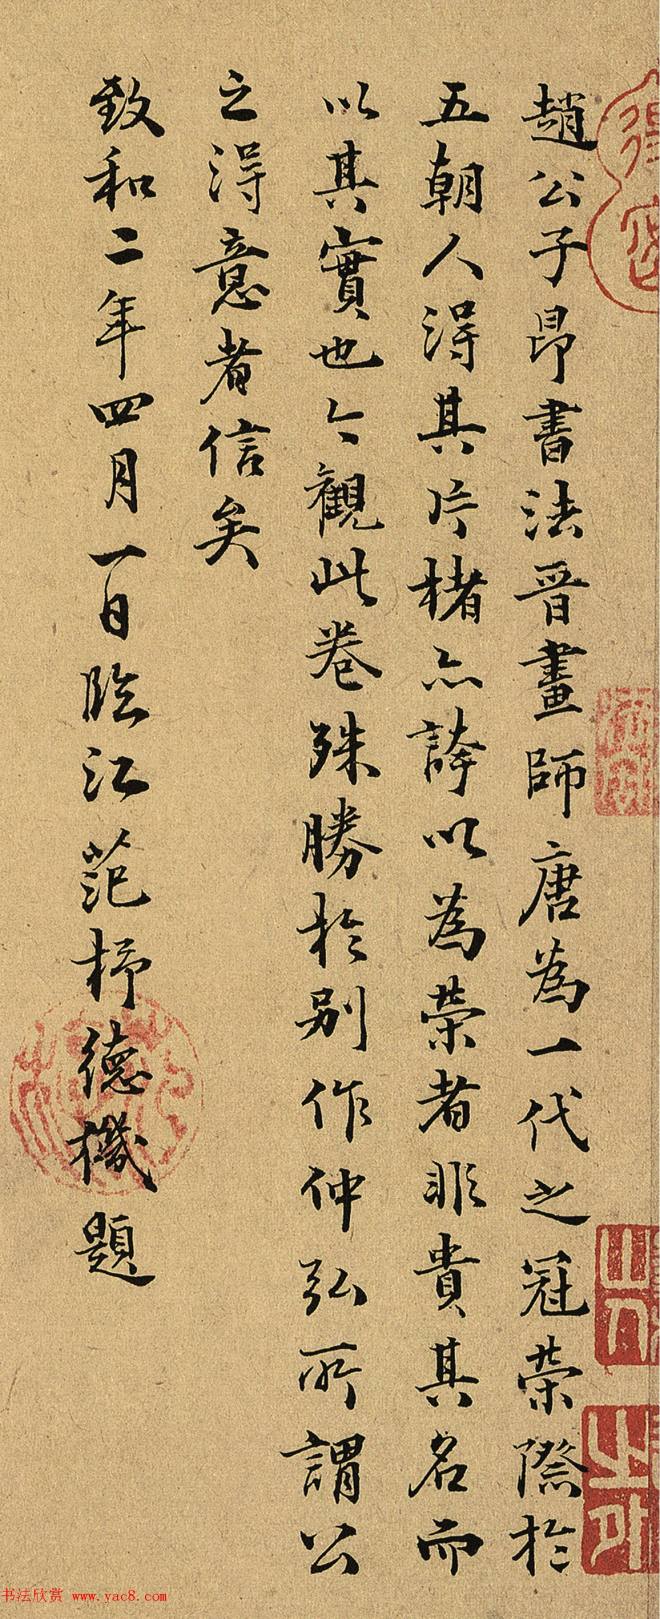 趙公子昂書法晉畫師唐為一代之冠榮際於
五朝人淂其片楮亦誇以為榮者非貴其名而
以其實也今觀此卷殊勝於別作仲弘所謂公
之淂意者信矣
致和二年四月一日臨江范梈德機題
书法欣赏 www.yac8.com